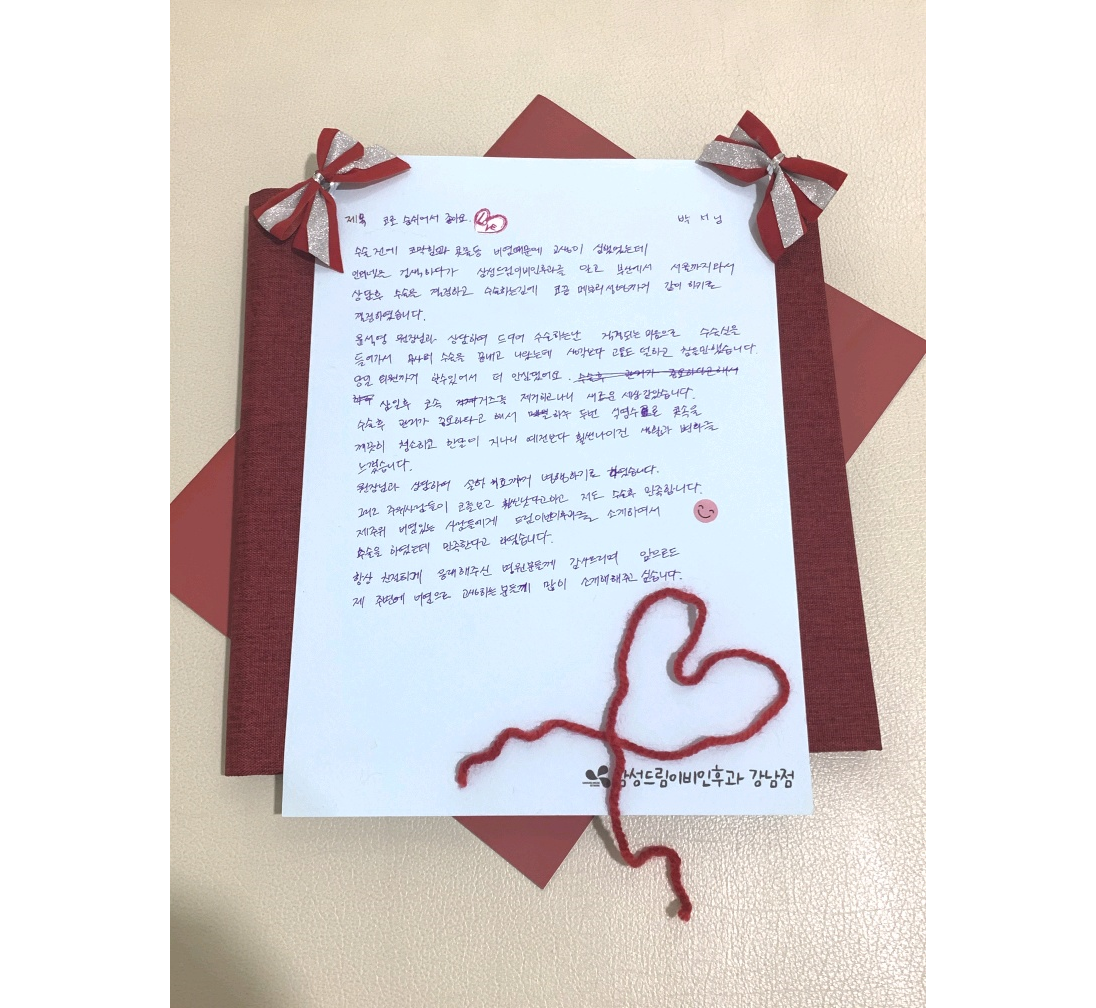 제목 코로 숨쉬어서 좋아요. 박 서 님
수술 전에 코막힘과 콧물등 비염때문에 고생이 심했었는데
인터넷으로 검색하다가 삼성드림이비인후과를 알고 부산에서 서울까지와서
상담후 수술을 결정하고 수술하는김에 코끝 성형까지 같이 하기로
결정하였습니다.
원장님과 상담하며 드디어 수술하는날 걱정되는 마음으로 수술실을
들어가서 무사히 수술을 끝내고 나왔는데 생각보다 고통도 덜하고 참을만했습니다.
당일 퇴원까지 할수있어서 더 안심됐어요.
삼일후 코속 거즈를 제거하고나니 새로운 세상같았습니다.
수술후 관리가 중요하다고 해서 하루 두번 식염수로 콧속을
깨끗이 청소하고 한달이 지나니 예전보다 훨씬나아진 생활과 변화를
느꼈습니다.
원장님과 상담하며 병행하기로 하였습니다.
그리고 주위사람들이 코를보고 훨씬낫다고하고 저도 수술후 만족합니다.
제주위 비염있는 사람들에게 드림이비인후과를 소개하여서
수술을 하였는데 만족한다고 하였습니다.
항상 친절하게 응대해주신 병원분들께 감사드리며 앞으로도
제 주변에 비염으로 고생하는 분들께 많이 소개해주고 싶습니다.
삼성드림이비인후과 강남점